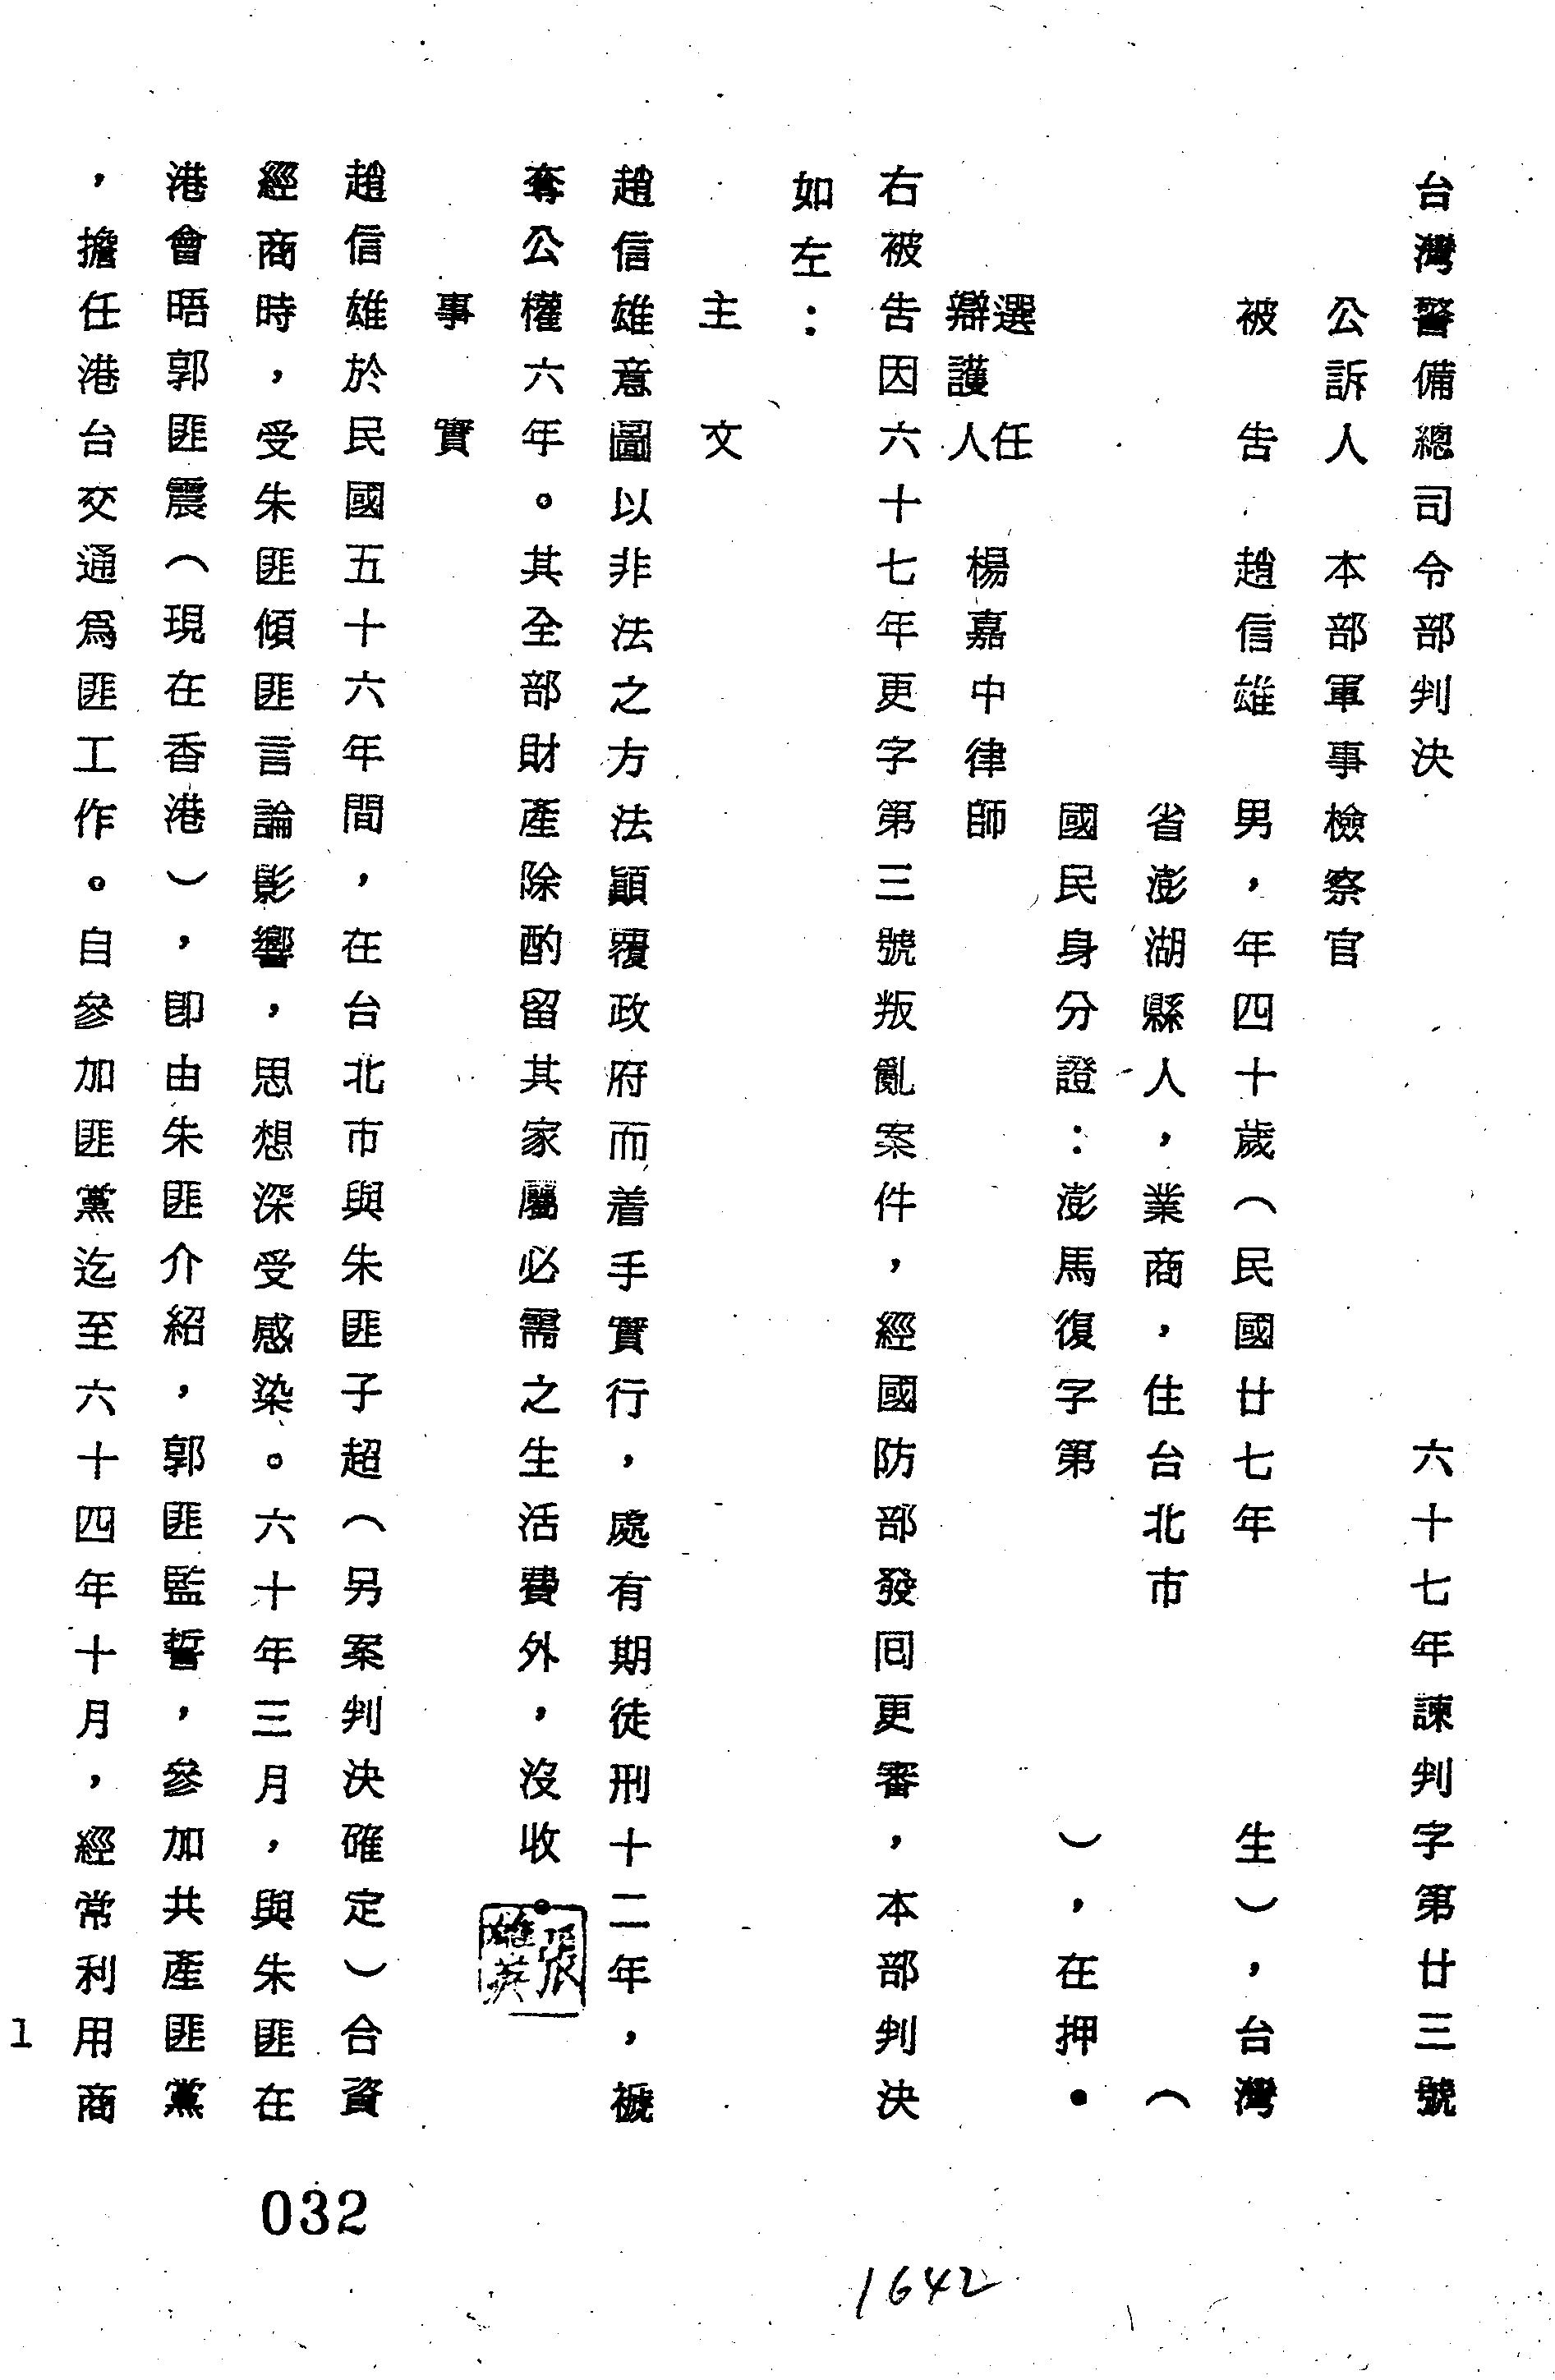 台灣警備總司令部判決　六十七年諫判字第廿三號
公訴人　本部軍事檢察官
被告　趙信雄　男，年四十歲（民國廿七年　生），台灣
省澎湖縣人，業商，住台北市　（
國民身分證：澎馬復字第　），在押。
選任
辯護人　楊嘉中律師
右被告因六十七年更字第三號叛亂案件，經國防部發回更審，本部判決
如左：
主文
趙信雄意圖以非法之方法顚覆政府而着手實行，處有期徒刑十二年，褫
奪公權六年。其全部財產除酌留其家屬必需之生活費外，沒收。
張
雄英
事實
趙信雄於民國五十六年間，在台北市與朱匪子超（另案判決確定）合資
經商時，受朱匪傾匪言論影響，思想深受感染。六十年三月，與朱匪在
港會晤郭匪震（現在香港），卽由朱匪介紹，郭匪監誓，參加共產匪黨
，擔任港台交通爲匪工作。自參加匪黨迄至六十四年十月，經常利用商
1
032
1642